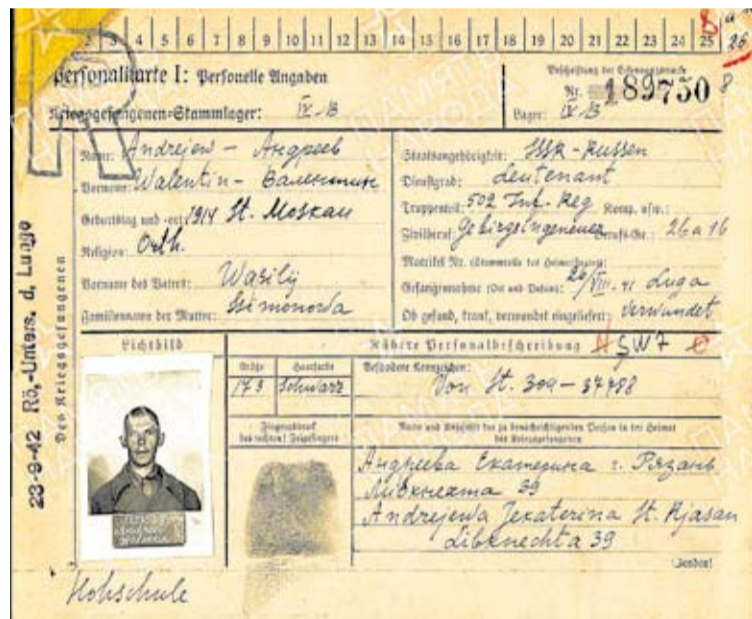 2 3 4 5 6 7 8 9 10 11 12 13 14 15 16 17 18 19 20 21 22 23 24 25 26
Personalkarte I: Personelle Angaben
Kriegsgefangenen-Stammlager: IV-B
Beschriftung der Erkennungsmarke
Nr. 189750
Lager: IV B
Name: Andrejew - Андреев
Vorname: Walentin - Валентин
Geburtstag und -ort 1914 St. Moskau
Religion: Orth.
Vorname des Vaters: Wasilij
Familienname der Mutter: Simonowa
Staatsangehörigkeit: SSR - Russen
Dienstgrad: Leutenant
Truppenteil: 502 Inf. Reg Komp. usw.:
Zivilberuf: Gebirgsingeneuer Berufs-Gr.: 26 a 16
Matrikel Nr. (Stammrolle des Heimatstaates):
Gefangennahme (Ort und Datum): 26/VIII. 41 Luga
Ob gesund, krank, verwundet eingeliefert: Verwundet
Des Kriegsgefangenen
23-9-42 Rö,-Unters. d, Lunge
Lichtbild
Nähere Personalbeschreibung
Größe Haarfarbe Besondere Kennzeichen:
173 Schwarz Von St. 309 - 37488
Fingerabdruck
des rechten! Zeigefingers
Name und Anschrift der zu benachrichtigenden Person in der Heimat
des Kriegsgefangenen
Андреева Екатерина г. Рязань
Либкнехта 39
Andrejewa Jekaterina St. Rjasan
Libknechta 39
Wenden!
Hohschule